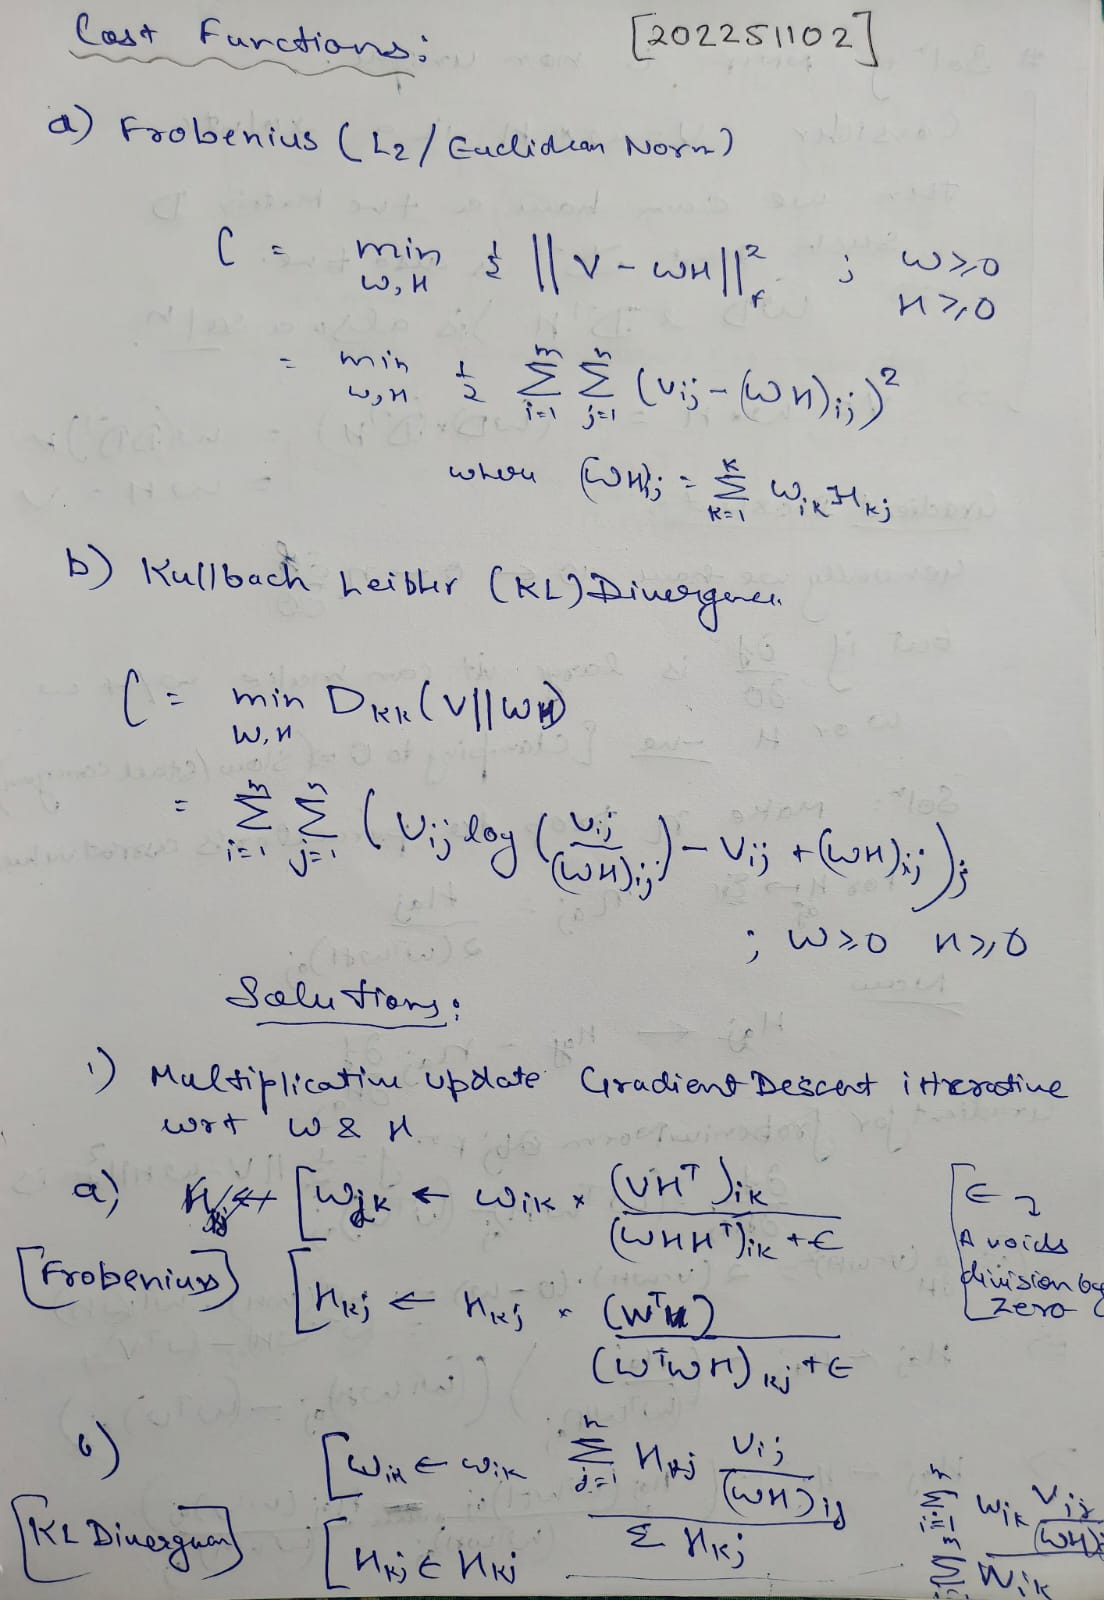 Cost Functions: [202251102]
a) Frobenius (L2/Euclidian Norm)
C = min_{W,H} 1/2 ||V - WH||²_F ; W≥0
H≥0
= min_{W,H} 1/2 Σ_{i=1}^{m} Σ_{j=1}^{n} (Vij - (WH)ij)²
where (WH)ij = Σ_{k=1}^{K} Wik Hkj
b) Kullbach Leibler (KL) Divergence
C = min_{W,H} D_KK (V||WH)
= Σ_{i=1}^{m} Σ_{j=1}^{n} (Vij log (Vij/(WH)ij) - Vij + (WH)ij);
; W≥0 H≥0
Solutions:
1) Multiplicative update Gradient Descent itterative
wrt W & H
a) [Wik ← Wik * (VHᵀ)ik / ((WHHᵀ)ik + ε) [ε →
Avoids
division by
zero
[Frobenius] [Hkj ← Hkj * (WᵀV) / ((WᵀWH)kj + ε)
b) [Wik ← Wik Σ_{j=1}^{n} Hkj Vij/(WH)ij / Σ Hkj
[KL Divergence] [Hkj ← Hkj Σ_{i=1}^{m} Wik Vij/(WH) / Σ_{i=1}^{m} Wik